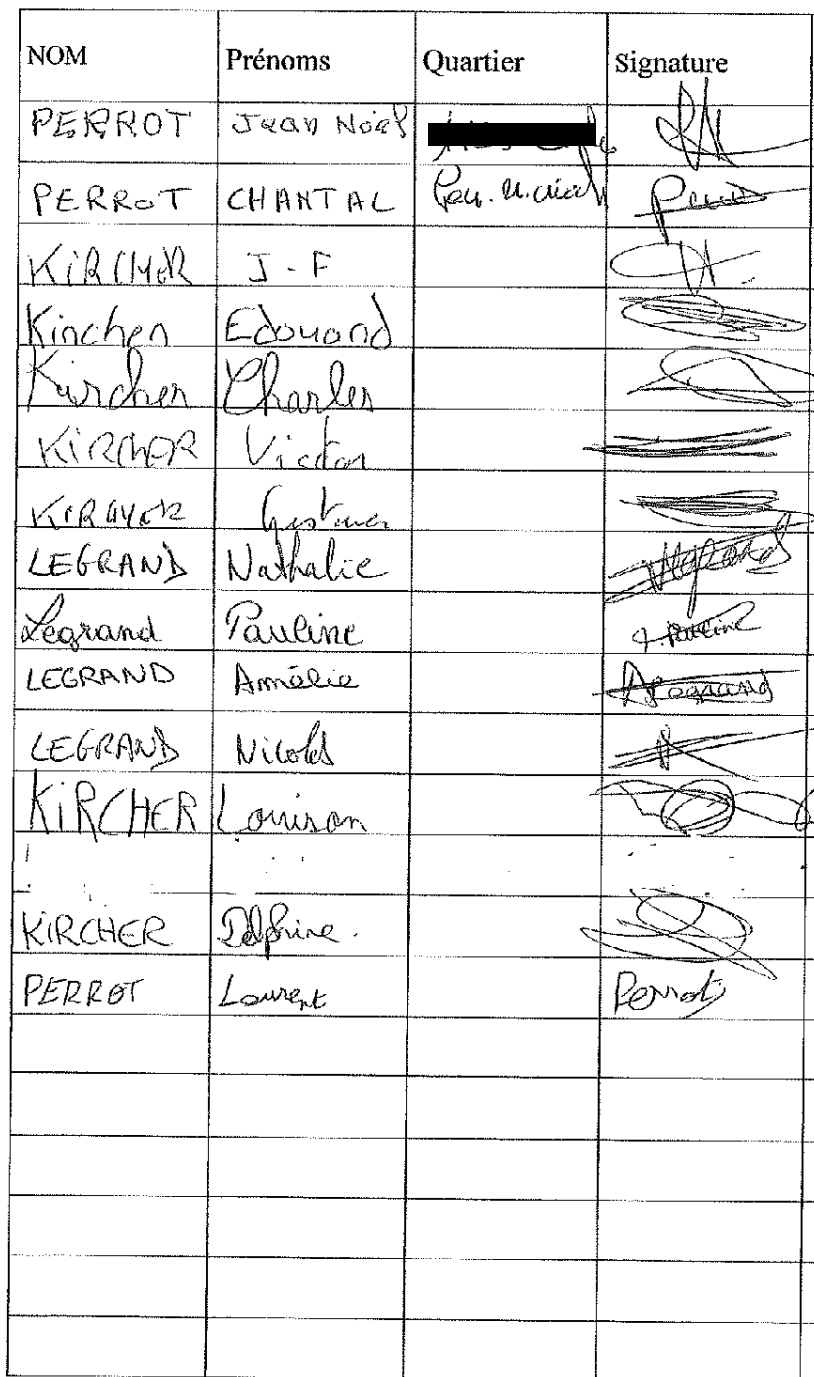 NOM Prénoms Quartier Signature
PERROT Jean Noël
PERROT CHANTAL
KiRCHER J-F
Kircher Edouard
Kircher Charles
KiRCHER Victor
KIRCHER
LEGRAND Nathalie
Legrand Pauline P. Pauline
LEGRAND Amélie A Legrand
LEGRAND Nicolas
KiRCHER Louison
KiRCHER Delphine.
PERROT Laurent Perrot